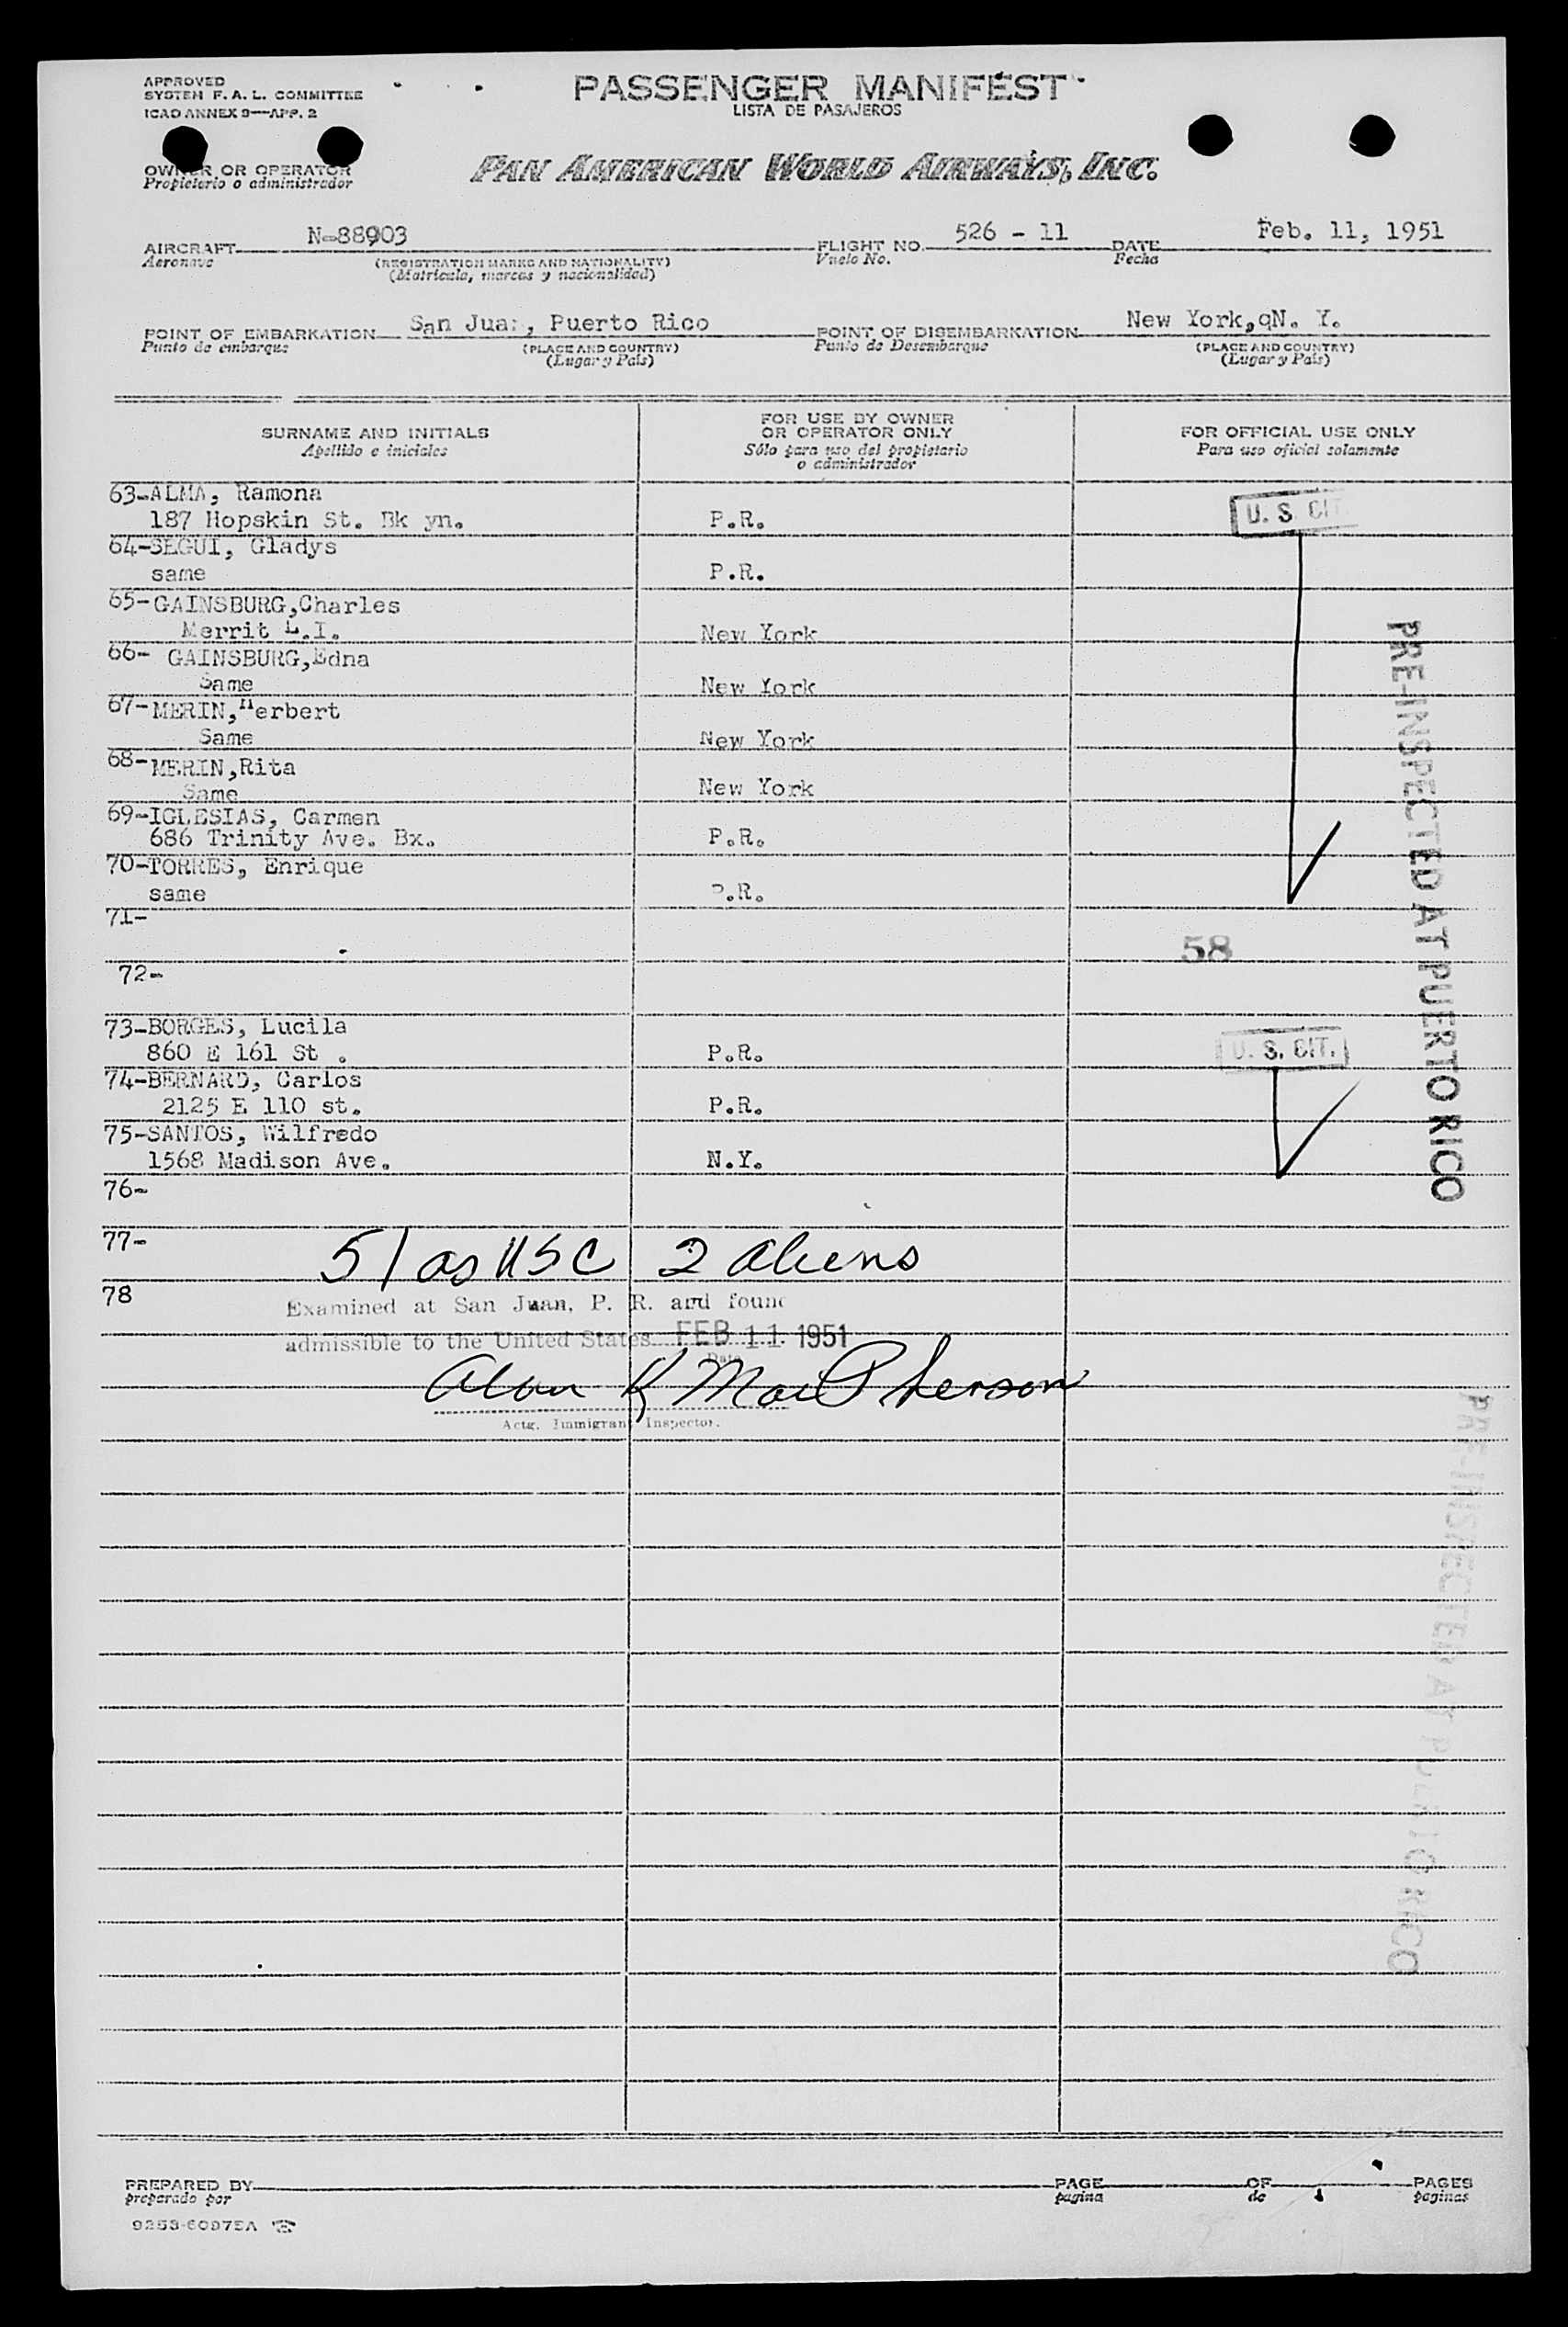 APPROVED
SYSTEM F. A. L. COMMITTEE
ICAO ANNEX 9—APP. 2
PASSENGER MANIFEST
LISTA DE PASAJEROS
OWNER OR OPERATOR
Propietario o administrador
PAN AMERICAN WORLD AIRWAYS, INC.
AIRCRAFT N-88903 FLIGHT NO. 526 - 11 DATE Feb. 11, 1951
Aeronave (REGISTRATION MARKS AND NATIONALITY) Vuelo No. Fecha
(Matricula, marcas y nacionalidad)
POINT OF EMBARKATION San Juan, Puerto Rico POINT OF DISEMBARKATION New York,qN. Y.
Punto de embarque (PLACE AND COUNTRY) Punto de Desembarque (PLACE AND COUNTRY)
(Lugar y País) (Lugar y País)
SURNAME AND INITIALS
Apellido e iniciales
FOR USE BY OWNER
OR OPERATOR ONLY
Sólo para uso del propietario
o administrador
FOR OFFICIAL USE ONLY
Para uso oficial solamente
63-ALMA, Ramona
187 Hopskin St. Bk yn. P.R. U. S. CIT
64-SEGUI, Gladys
same P.R.
65-GAINSBURG,Charles
Merrit L.I. New York
66- GAINSBURG,Edna
Same New York
67-MERIN,Herbert
Same New York
68-MERIN,Rita
Same New York
69-IGLESIAS, Carmen
686 Trinity Ave. Bx. P.R.
70-TORRES, Enrique
same P.R.
71-
58
72-
73-BORGES, Lucila
860 E 161 St . P.R. U. S. CIT.
74-BERNARD, Carlos
2125 E 110 st. P.R.
75-SANTOS, Wilfredo
1568 Madison Ave. N.Y.
76-
77-
51 as USC 2 aliens
78
Examined at San Juan, P. R. and found
admissible to the United States FEB 11 1951
Date
Alan K MacPherson
Actg. Immigrant Inspector.
PRE-INSPECTED AT PUERTO RICO
PRE-INSPECTED AT PUERTO RICO
PREPARED BY PAGE OF PAGES
preparado por pagina de paginas
9253-60975A